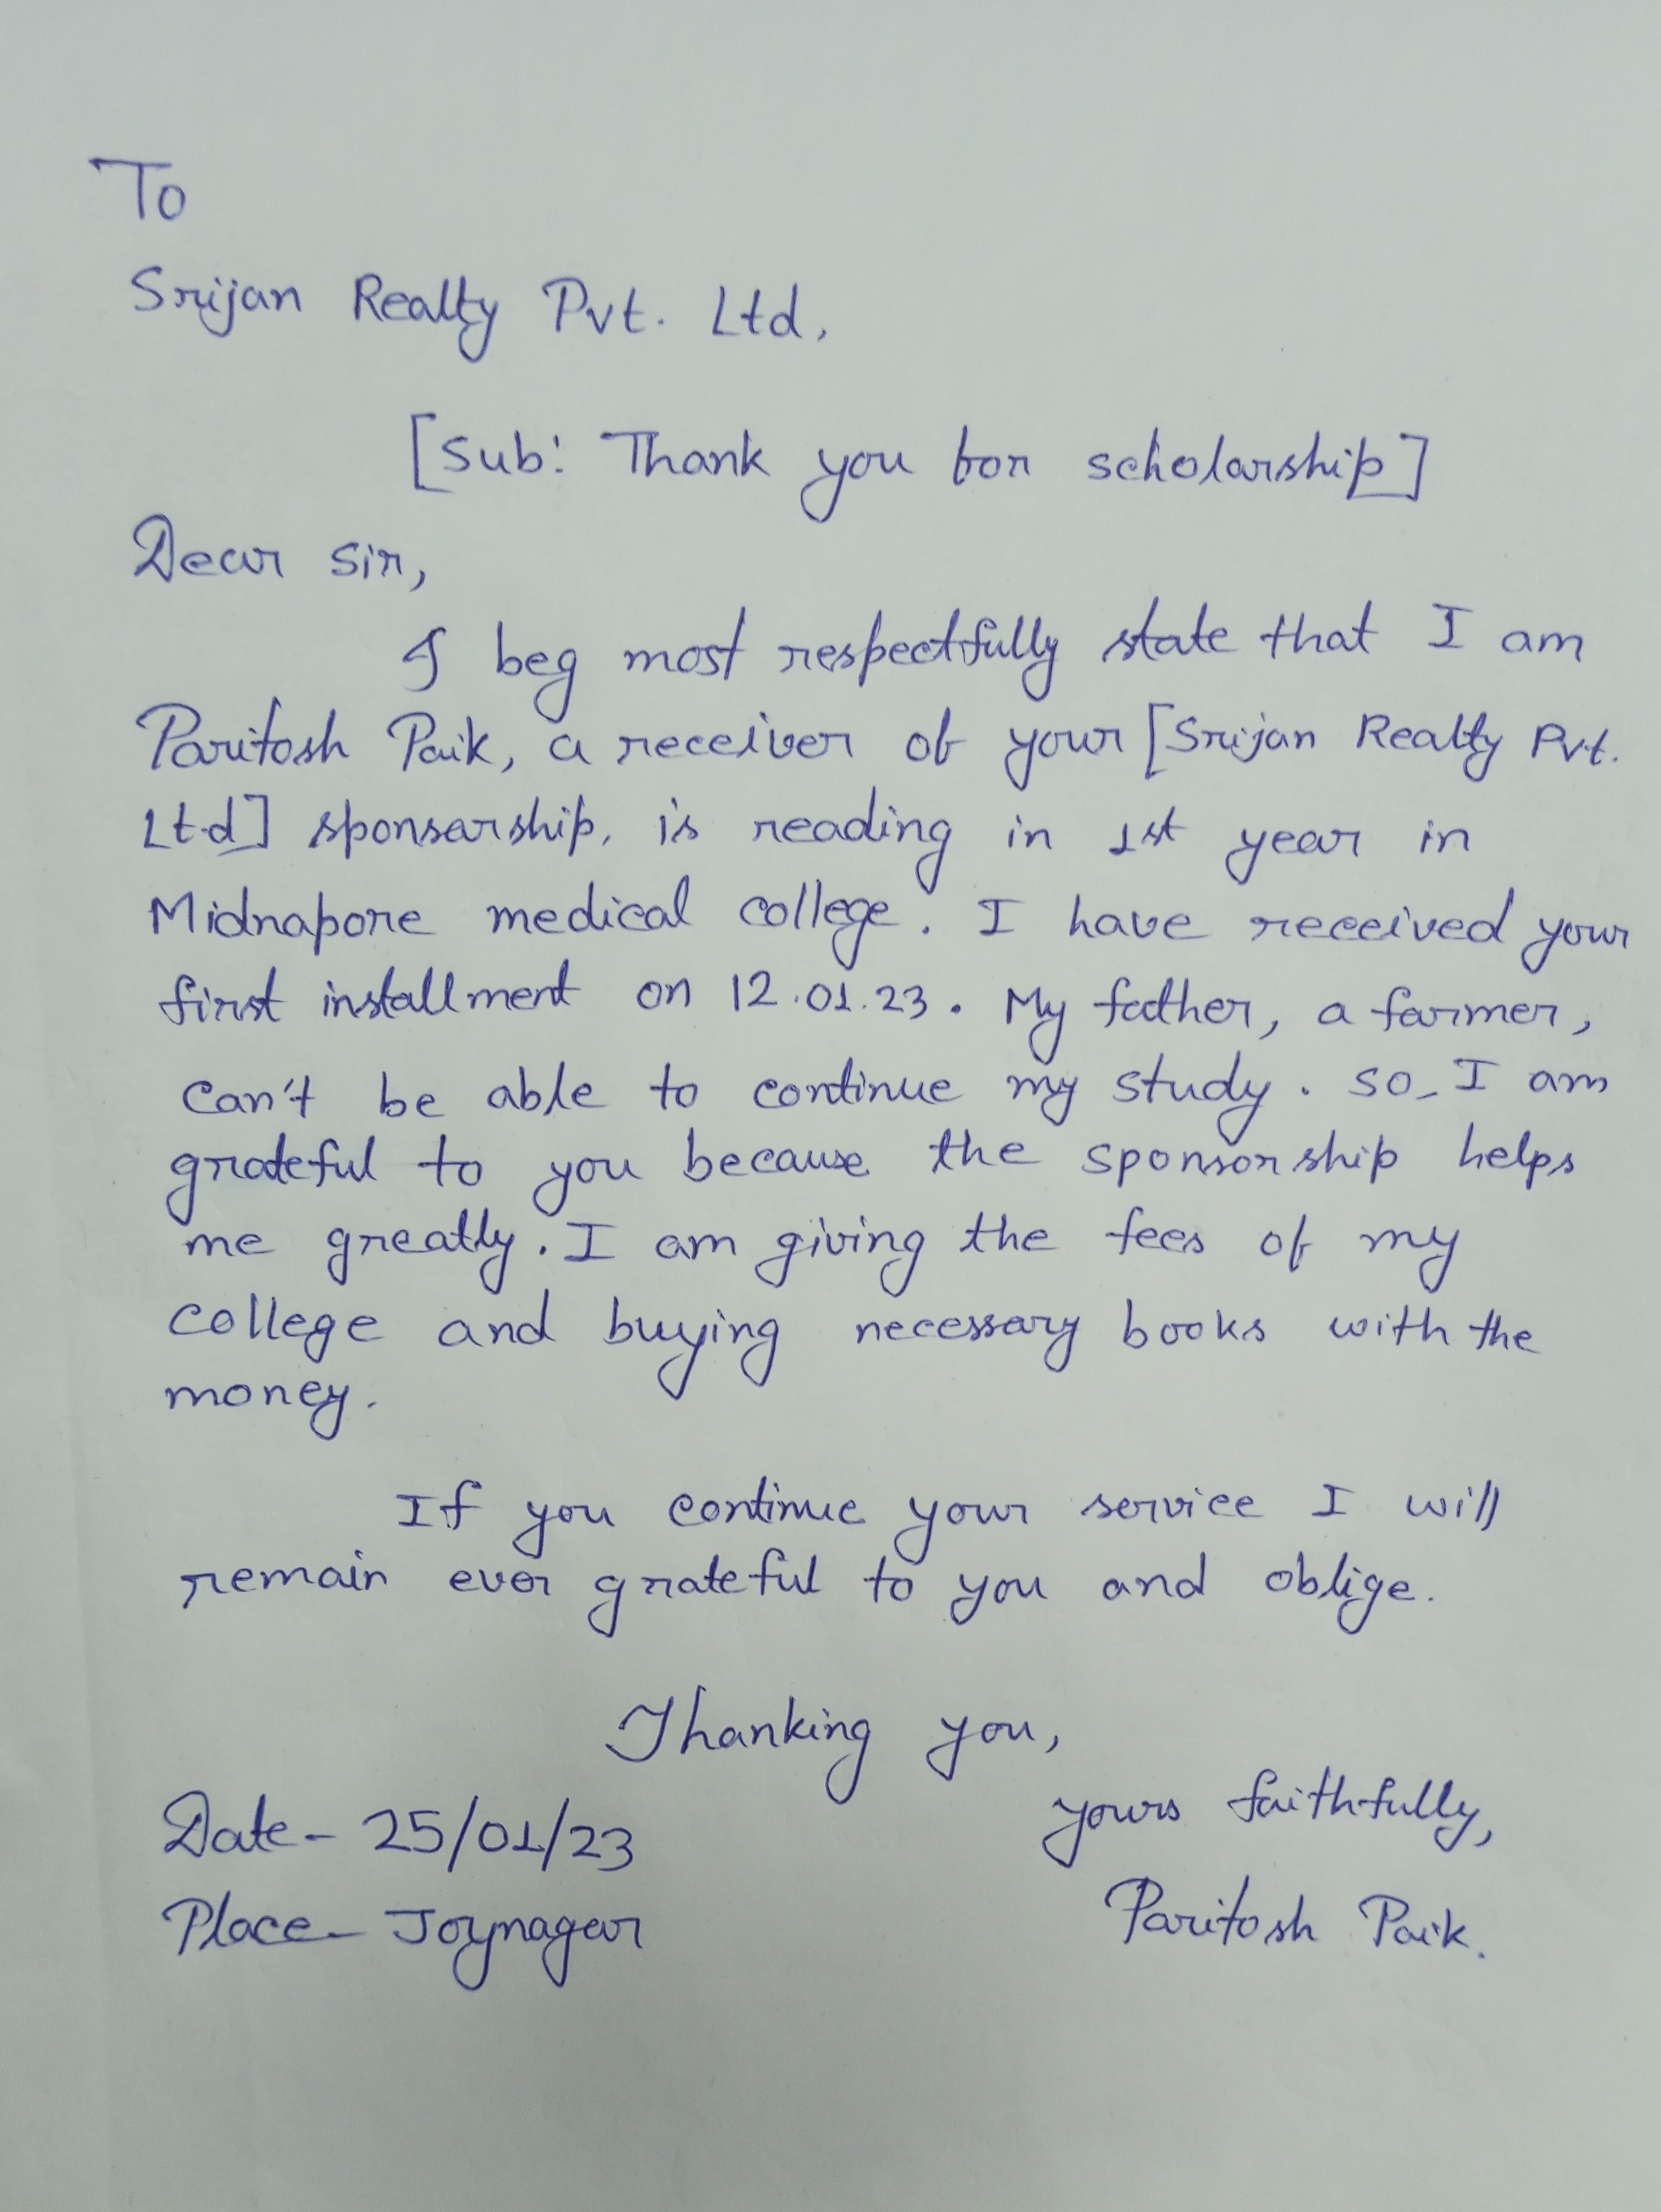 To
Srijan Realty Pvt. Ltd.
[Sub: Thank you for scholarship]
Dear sir,
I beg most respectfully state that I am
Paritosh Paik, a receiver of your [Srijan Realty Pvt.
Ltd] sponsarship, is reading in 1st year in
Midnapore medical college. I have received your
first installment on 12.01.23. My father, a farmer,
can't be able to continue my study. so, I am
grateful to you because the sponsorship helps
me greatly. I am giving the fees of my
college and buying necessary books with the
money.
If you continue your service I will
remain ever grateful to you and oblige.
Thanking you,
yours faithfully,
Date- 25/01/23
Paritosh Paik.
Place- Joynagar